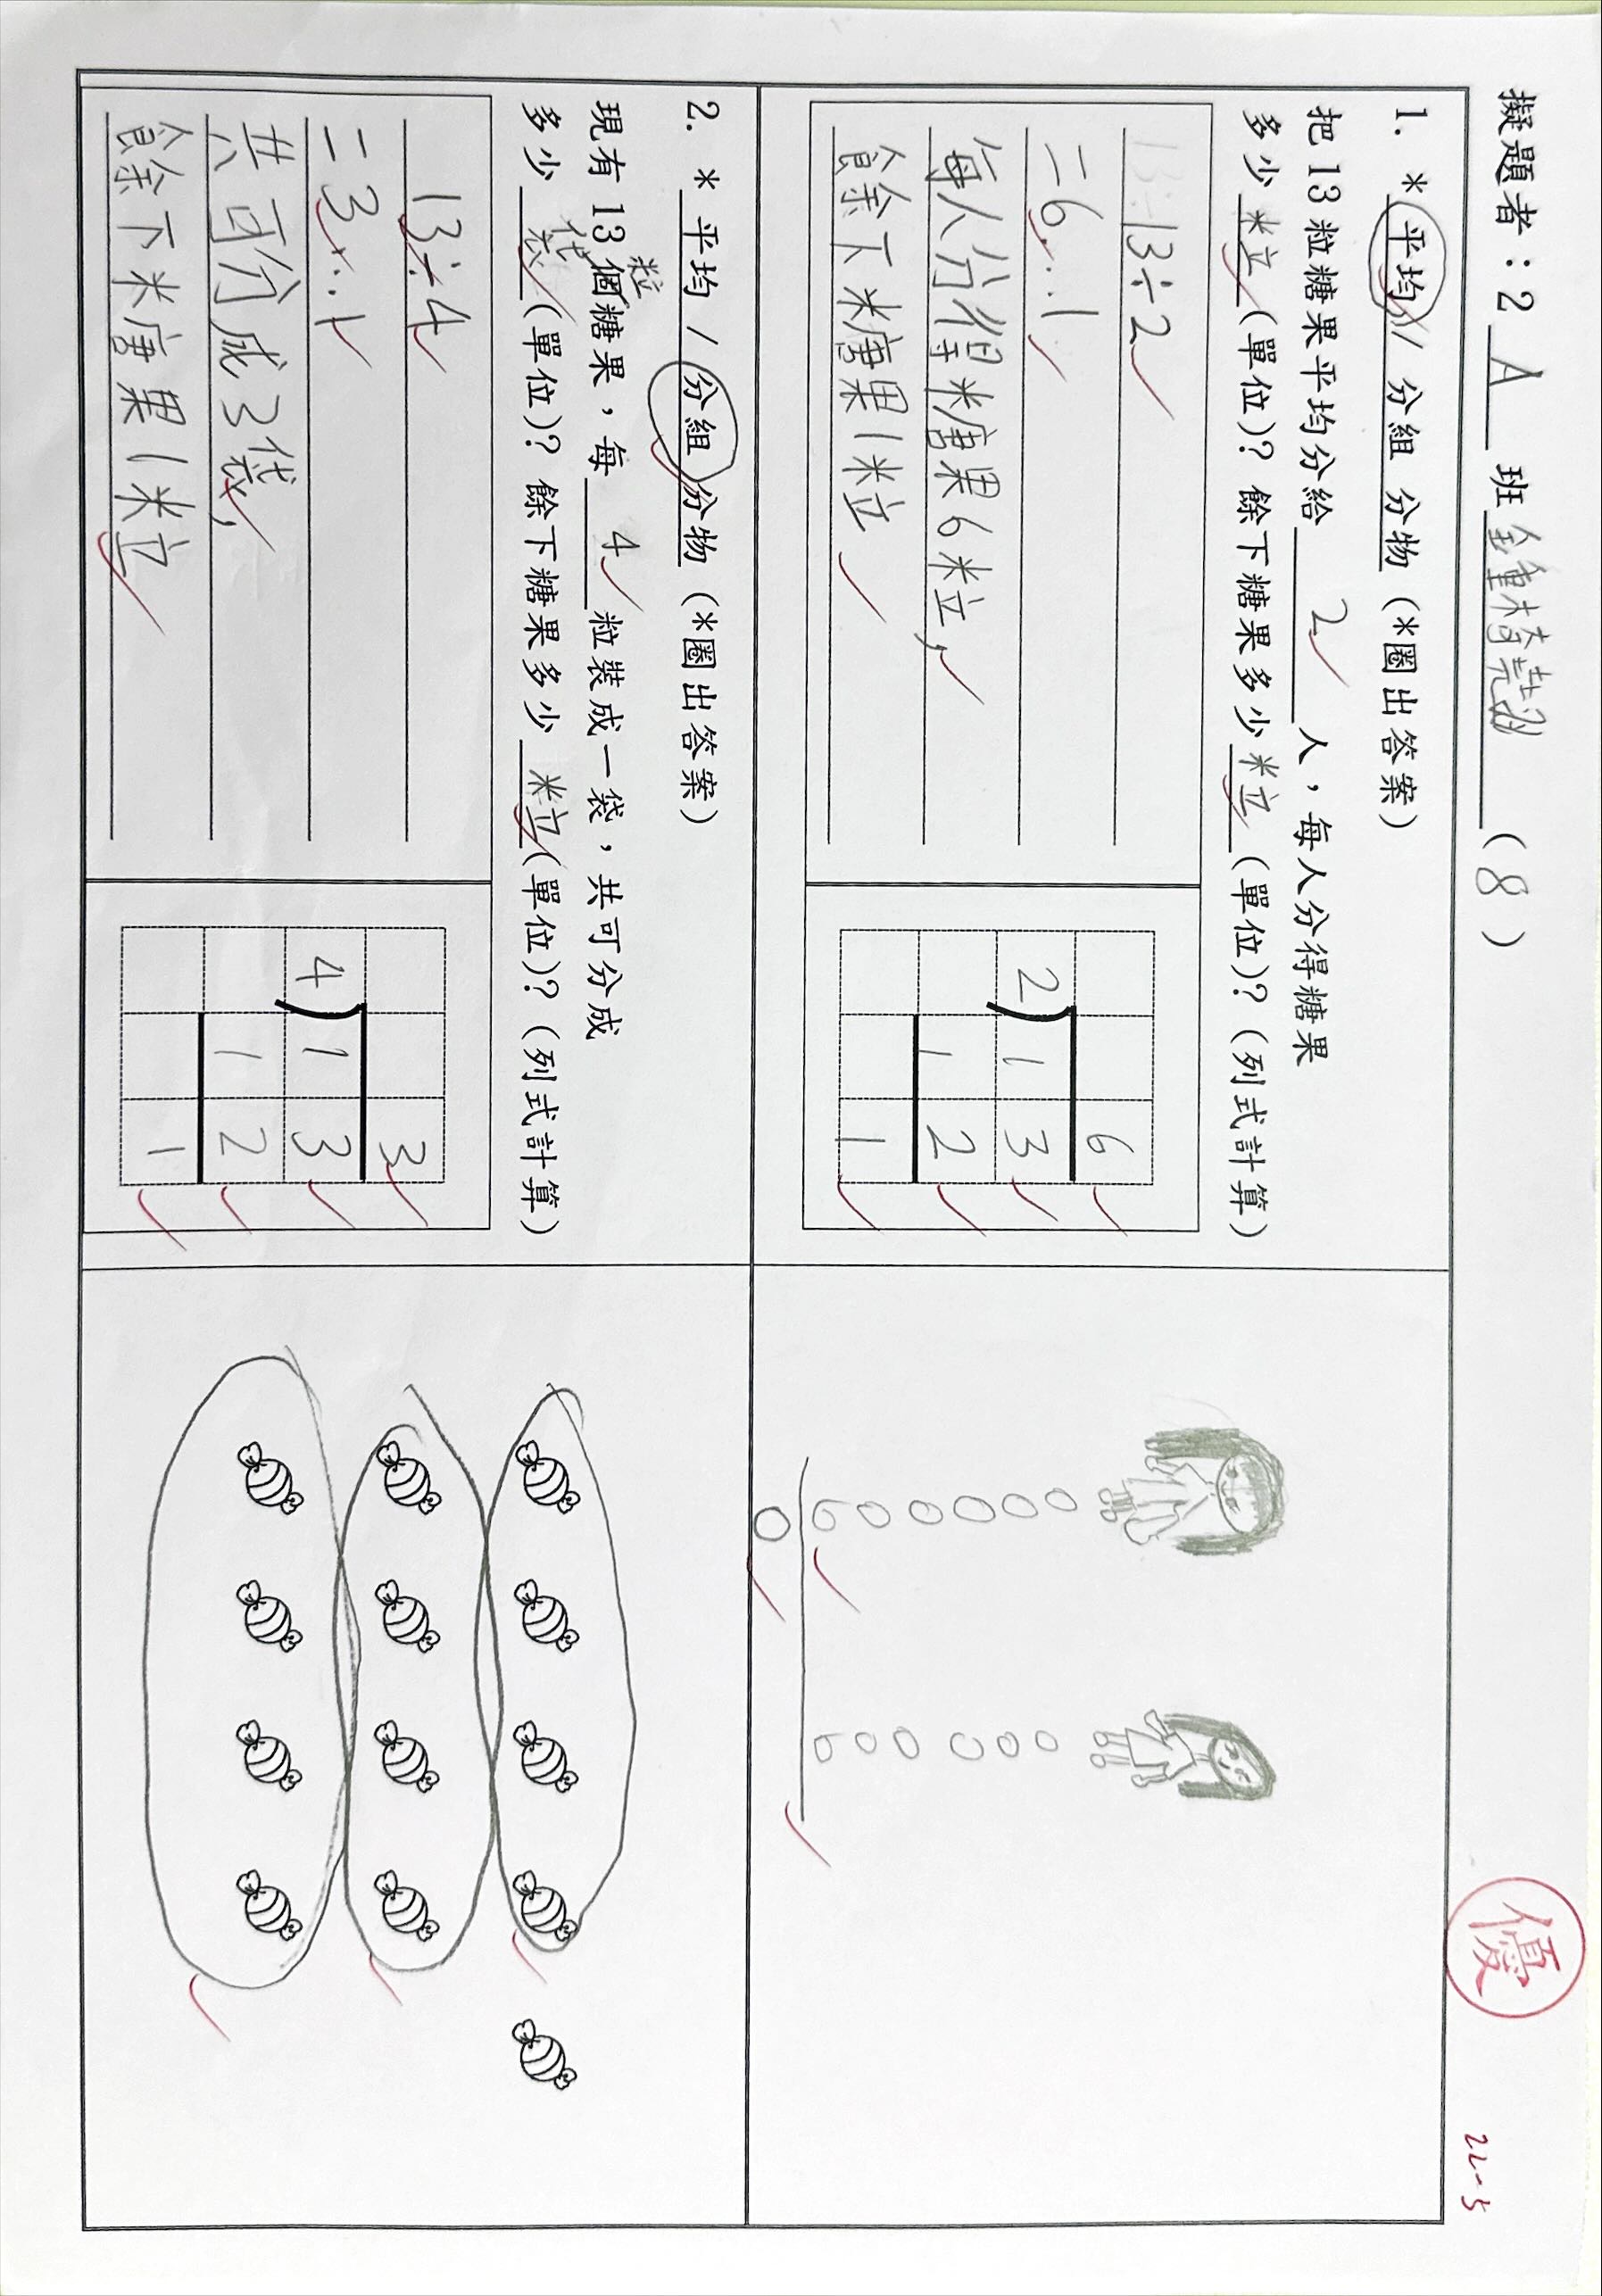 擬題者：2 A 班 鐘梓堯 (8)
優
22-5
1. * 平均 / 分組 分物 (*圈出答案)
把 13 粒糖果平均分給 2 人，每人分得糖果
多少 粒 (單位)？餘下糖果多少 粒 (單位)？(列式計算)
13÷2
=6...1
每人分得糖果6粒，
餘下糖果1粒
6
2 1 3
1 2
1
2. * 平均 / 分組 分物 (*圈出答案)
現有 13 個糖果，每 4 粒裝成一袋，共可分成
粒
多少 袋 (單位)？餘下糖果多少 粒 (單位)？(列式計算)
13÷4
=3...1
共可分成3袋，
餘下糖果1粒
3
4 1 3
1 2
1